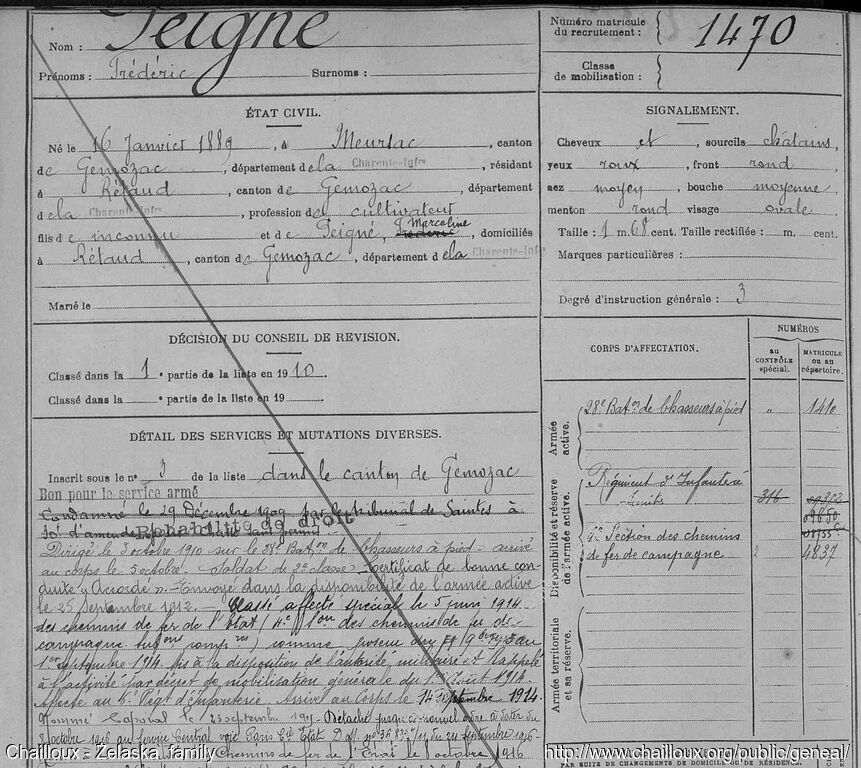 Nom : Peigné
Prénoms : Frédéric Surnoms :
Numéro matricule du recrutement : 1470
Classe de mobilisation :
ÉTAT CIVIL.
Né le 16 Janvier 1889, à Meursac, canton
de Gemozac, département de la Charente-Infre, résidant
à Rétaud, canton de Gemozac, département
de la Charente-Infre, profession de cultivateur
fils de inconnu et de Peigné, Frédéric Marceline, domiciliés
à Rétaud, canton de Gemozac, département de la Charente-Infre
Marié le
SIGNALEMENT.
Cheveux et sourcils châtains,
yeux roux, front rond
nez moyen, bouche moyenne
menton rond visage ovale
Taille : 1 m. 68 cent. Taille rectifiée : m. cent.
Marques particulières :
Degré d'instruction générale : 3
DÉCISION DU CONSEIL DE REVISION.
Classé dans la 1e partie de la liste en 1910
Classé dans la e partie de la liste en 19
DÉTAIL DES SERVICES ET MUTATIONS DIVERSES.
Inscrit sous le no 3 de la liste dans le canton de Gemozac
Bon pour le service armé
Condamné le 29 Décembre 1909 par le tribunal de Saintes à
10f d'amende
Réhabilité de droit
Dirigé le 3 octobre 1910 sur le 28e Baton de Chasseurs à pied - arrivé
au corps le 5 octobre. Soldat de 2e classe - Certificat de bonne con
duite "Accordé". Envoyé dans la disponibilité de l'armée active
le 25 Septembre 1912 - Classé affecté spécial le 5 juin 1914
des chemins de fer de l'Etat (4e des chemins de fer de
campagne ) comme poseur
1er septembre 1914 mis à la disposition de l'autorité militaire et Rappelé
à l'activité par décret de mobilisation générale du 1er Août 1914.
Affecté au 6e Régt d'Infanterie. Arrivé au corps le 14 septembre 1914.
Nommé Caporal le 23 septembre 1915 - Détaché jusqu'à nouvel ordre à dater du
8 octobre 1916 au Central voie Paris Etat 24 septembre 1916
Chemins de fer de l'Etat le octobre 1916
CORPS D'AFFECTATION.
NUMÉROS
au CONTRÔLE spécial.
MATRICULE ou au répertoire.
Armée active.
28e Baton de Chasseurs à pied " 1410
Disponibilité et réserve de l'armée active.
Régiment d'Infanterie
Saintes 316
4e Section des chemins
de fer de campagne 2 4837
Armée territoriale et sa réserve.
PAR SUITE DE CHANGEMENTS DE DOMICILE OU DE RÉSIDENCE.
Chailloux - Zelaska family
http://www.chailloux.org/public/geneal/